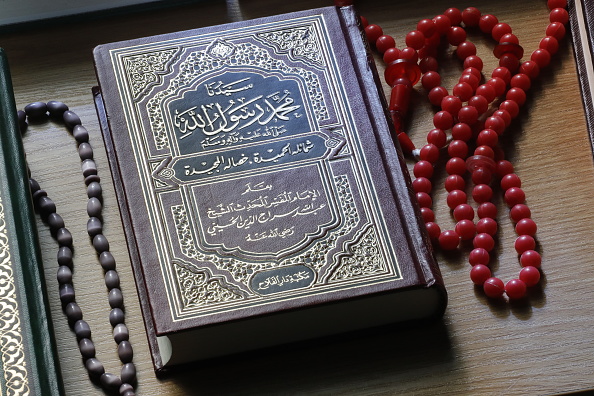 سيدنا
محمد رسول الله
صلى الله عليه وآله وسلم
شمائله الحميدة . خصاله المجيدة
بقلم
الإمام المفسر المحدث الشيخ
عبد الله سراج الدين الحسيني
رضي الله عنه
مكتبة دار الفلاح